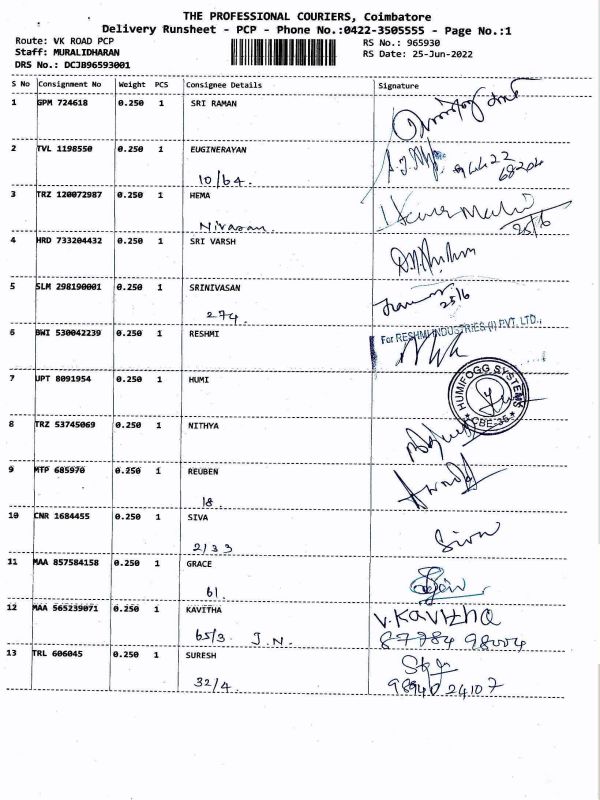 THE PROFESSIONAL COURIERS, Coimbatore
Delivery Runsheet - PCP - Phone No.:0422-3505555 - Page No.:1
Route: VK ROAD PCP RS No.: 965930
Staff: MURALIDHARAN RS Date: 25-Jun-2022
DRS No.: DCJB96593001
S No Consignment No Weight PCS Consignee Details Signature
1 GPM 724618 0.250 1 SRI RAMAN
2 TVL 1198550 0.250 1 EUGINERAYAN
10/64.
3 TRZ 120072987 0.250 1 HEMA
Nivasan 25/6
4 HRD 733204432 0.250 1 SRI VARSH
5 SLM 298190001 0.250 1 SRINIVASAN
274. 25/6
6 BWI 530042239 0.250 1 RESHMI For RESHMI INDUSTRIES (I) PVT. LTD.,
7 UPT 8091954 0.250 1 HUMI HUMIFOGG SYSTEMS
CBE-35
8 TRZ 53745069 0.250 1 NITHYA
9 MTP 685970 0.250 1 REUBEN
18.
10 CNR 1684455 0.250 1 SIVA Siva
2/33
11 MAA 857584158 0.250 1 GRACE
61.
12 MAA 565239071 0.250 1 KAVITHA V. Kavitha
65/3 J.N. 87784 98004
13 TRL 606045 0.250 1 SURESH
32/4. 98940 24107